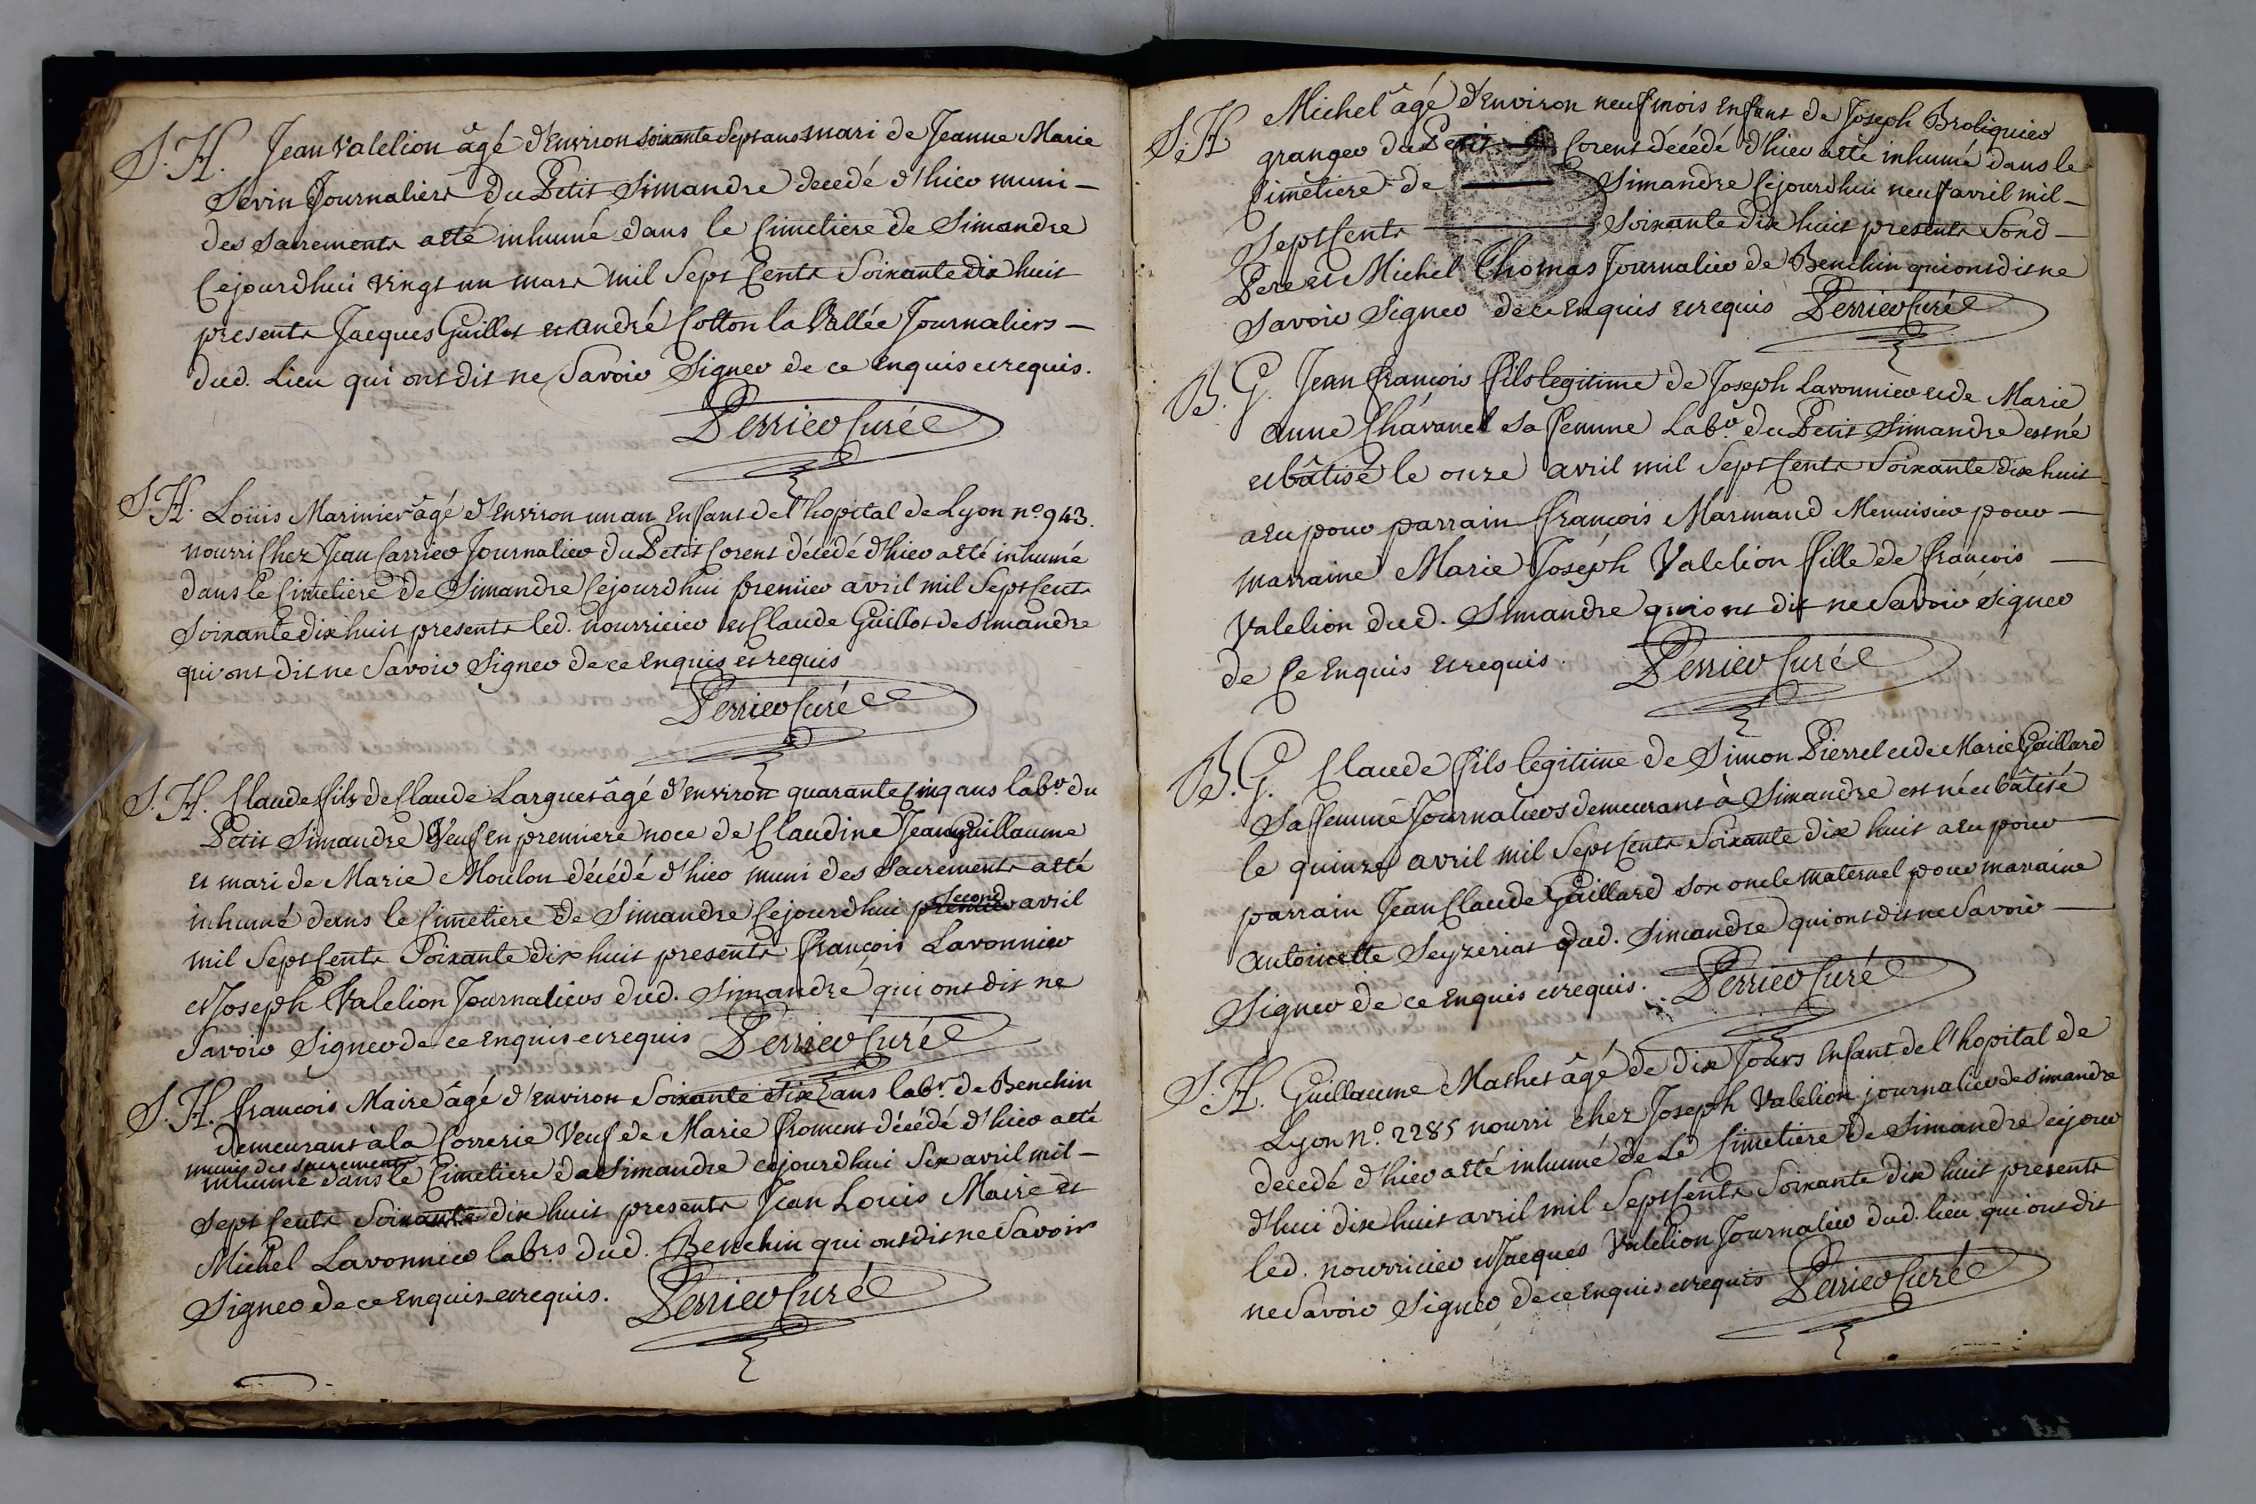 S.H. Jean Valelion âgé d'Environ soixante Sept ans mari de Jeanne Marie
Sevin Journaliers du Petit Simandre decedé d'hier muni –
des Sacrements a eté inhumé dans le Cimetiere de Simandre
Cejourdhui vingt un mars mil Sept Cents Soixante dix huit
presents Jacques Guillot et andré Cotton la Vallée Journaliers –
dud. Lieu qui ont dit ne Savoir Signer de ce Enquis et requis.
Perrier Curé
S.H. Loüis Marinier âgé d'Environ un an Enfant de l'hopital de Lyon n.º 943.
nourri Chez Jean Carrier Journalier du Petit Corent décédé d'hier a eté inhumé
dans le Cimetiere de Simandre Cejourdhui premier avril mil Sept Cents
Soixante dix huit presents led. nourricier et Claude Guillot de Simandre
qui ont dit ne Savoir Signer de ce Enquis et requis
Perrier Curé
S.H. Claude fils de Claude Larguet âgé d'environ quarante Cinq ans lab.r du
Petit Simandre Veuf en premiere noce de Claudine Jean Guillaume
et mari de Marie Moulon décédé d'hier muni des Sacrements a eté
inhumé dans le Cimetiere de Simandre Cejourdhui premier second avril
mil Sept Cents Soixante dix huit presents françois Lavonnier
et Joseph Valelion Journaliers dud. Simandre qui ont dit ne
Savoir Signer de ce Enquis et requis Perrier Curé
S.H. françois Maire âgé d'environ Soixante dix ans lab.r de Benchin
demeurant à la Correrie Veuf de Marie froment décédé d'hier a eté
muni des Sacrements
inhumé dans le Cimetiere de Simandre cejourdhui Six avril mil –
Sept Cents Soixante dix huit presents Jean Louis Maire et
Michel Lavonnier lab.rs dud. Benchin qui ont dit ne Savoir
Signer de ce Enquis et requis. Perrier Curé
S.H. Michel âgé d'Environ neuf mois Enfant de Joseph Broliquier
granger du Petit Corent décédé d'hier a eté inhumé dans le
Cimetiere de Simandre Cejourdhui neuf avril mil –
Sept Cents Soixante dix huit presents Sond –
Pere et Michel Thomas Journalier de Benchin qui ont dit ne
Savoir Signer de ce Enquis et requis Perrier Curé
B.G. Jean françois fils legitime de Joseph Lavonnier et de Marie
anne Chavanel sa femme Lab.r du Petit Simandre est né
et bâtisé le onze avril mil Sept Cents Soixante dix huit
a eu pour parrain françois Marmand Menuisier pour –
marraine Marie Joséph Valelion fille de françois –
Valelion dud. Simandre qui ont dit ne Savoir Signer
de Ce Enquis et requis. Perrier Curé
B.G. Claude fils legitime de Simon Pierrel et de Marie Gaillard
Sa femme Journaliers demeurant à Simandre est né et bâtisé
le quinze avril mil Sept Cents Soixante dix huit a eu pour –
parrain Jean Claude Gaillard son oncle maternel pour marraine
Antoinette Seyzeriat dud. Simandre qui ont dit ne Savoir –
Signer de ce Enquis et requis. Perrier Curé
S.H. Guillaume Mathet âgé de dix Jours Enfant de l'hopital de
Lyon N.º 2285 nourri chez Joseph Valelion journalier de Simandre
decedé d'hier a eté inhumé de Le Cimetiere de Simandre cejour
d'hui dix huit avril mil Sept Cents Soixante dix huit presents
led. nourricier et Jacques Valelion Journalier dud. lieu qui ont dit
ne Savoir Signer de ce Enquis et requis Perrier Curé